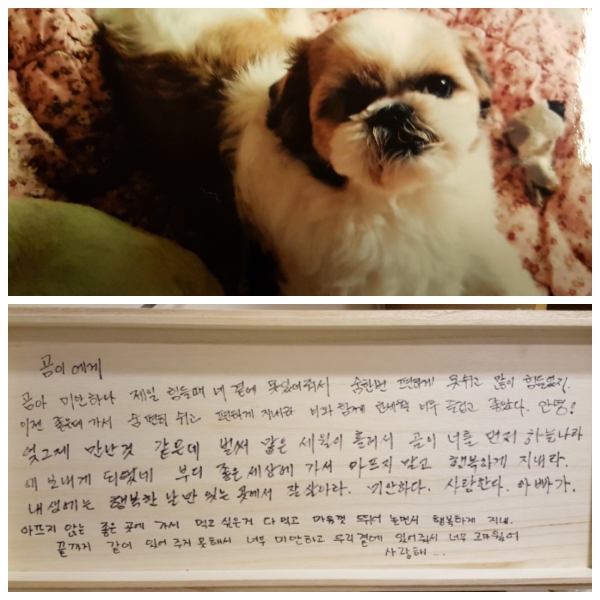 곰이 에게
곰아 미안하다 제일 힘들때 네 곁에 못있어줘서 숨한번 편하게 못쉬고 많이 힘들었지.
이젠 좋은데 가서 숨 편히 쉬고 편하게 지내라 너와 함께 한세월 너무 즐겁고 좋았다. 안녕!
엊그제 만난것 같은데 벌써 많은 세월이 흘러서 곰이 너를 먼저 하늘나라
에 보내게 되었네 부디 좋은세상에 가서 아프지 말고 행복하게 지내라.
내생에는 행복한 날만 있는 곳에서 잘 살아라. 미안하다. 사랑한다. 아빠가.
아프지 않는 좋은 곳에 가서 먹고 싶은거 다 먹고 마음껏 뛰어 놀면서 행복하게 지내.
끝까지 같이 있어 주지 못해서 너무 미안하고 우리 곁에 있어줘서 너무 고마웠어
사랑해...